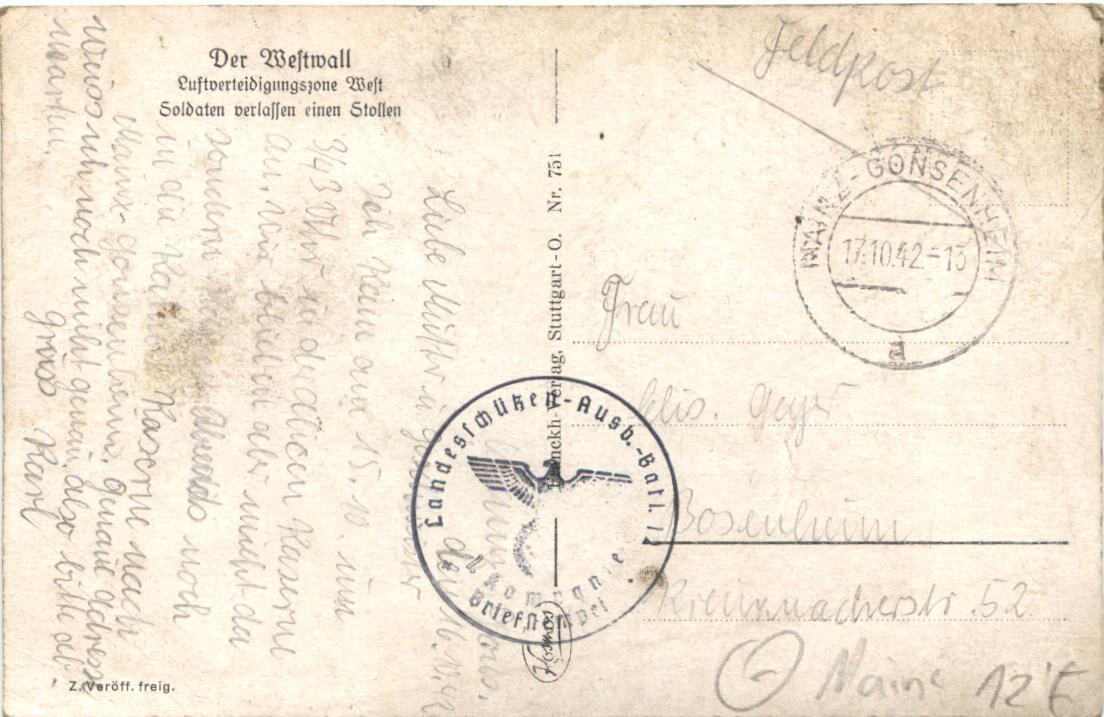 Der Westwall
Luftverteidigungszone West
Soldaten verlassen einen Stollen
Feldpost
MAINZ-GONSENHEIM
17.10.42.-13
a
Frau
Elis. Geyer
Bosenheim
Kreuznacherstr 52
Mainz 12 E
Franckh-Verlag, Stuttgart-O. Nr. 751
Kosmos
Landesschützen-Ausb.-Batl. 12
Kompanie
Briefstempel
den 16.10.42
Liebe Mutter u.
Ich kam am 15.10. um
3/43 Uhr in der alten Kaserne
an. Wir bleiben aber nicht da
sondern Abends noch
in die Kaserne nach
Mainz-Gonsenheim. genaue adresse
weiss ich noch nicht genau, also bitte ab-
warten.
Gruss Karl
Z. Veröff. freig.